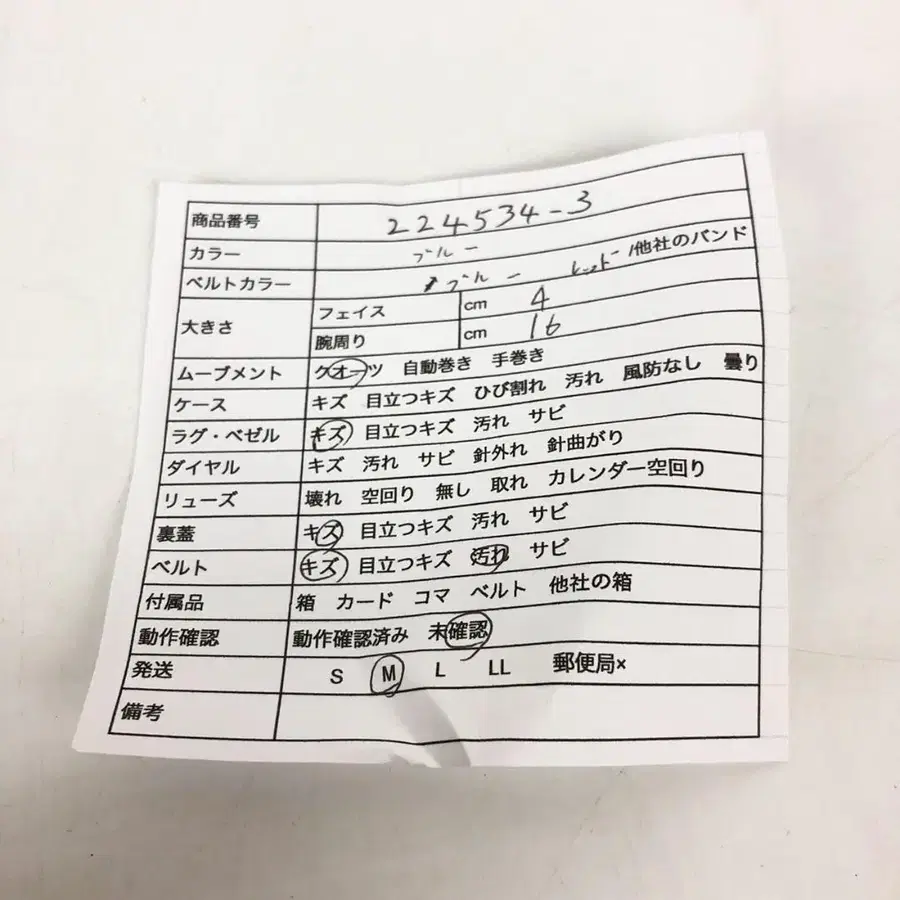 商品番号 224534-3
カラー ブルー
ベルトカラー ブルー レッド /他社のバンド
大きさ フェイス cm 4
腕周り cm 16
ムーブメント クオーツ 自動巻き 手巻き
ケース キズ 目立つキズ ひび割れ 汚れ 風防なし 曇り
ラグ・ベゼル キズ 目立つキズ 汚れ サビ
ダイヤル キズ 汚れ サビ 針外れ 針曲がり
リューズ 壊れ 空回り 無し 取れ カレンダー空回り
裏蓋 キズ 目立つキズ 汚れ サビ
ベルト キズ 目立つキズ 汚れ サビ
付属品 箱 カード コマ ベルト 他社の箱
動作確認 動作確認済み 未確認
発送 S M L LL 郵便局×
備考